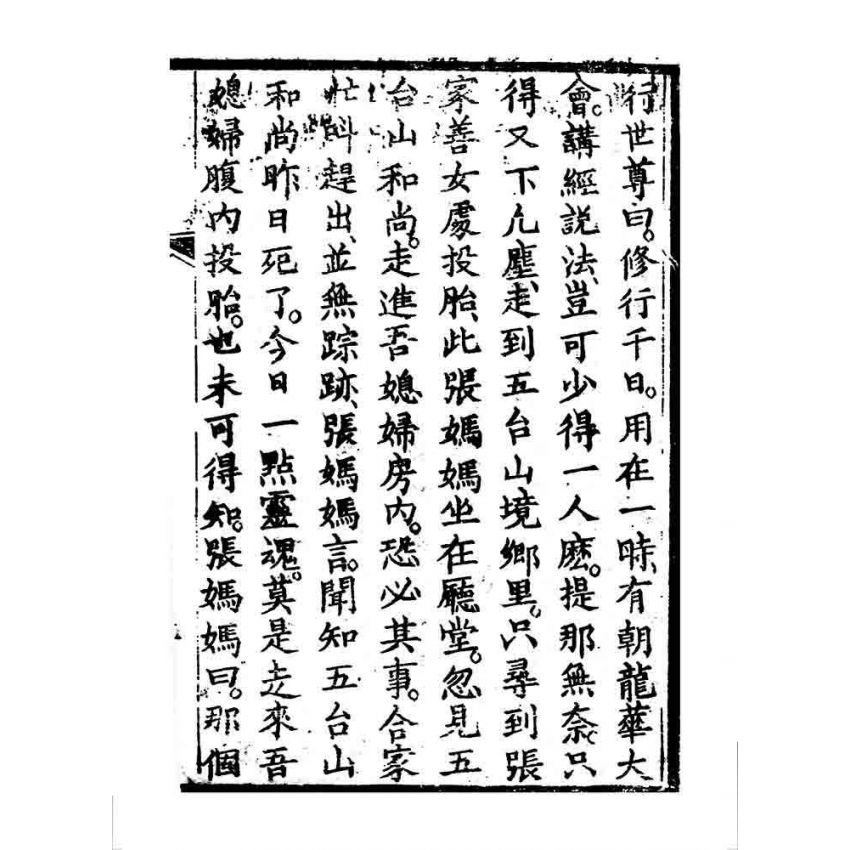 行世尊曰。修行千日。用在一時、有朝龍華大
會。講經説法、豈可少得一人麽。提那無奈。只
得又下凢塵、走到五台山境鄉里。只尋到張
家善女處投胎、此張媽媽坐在廳堂。忽見五
台山和尚。走進吾媳婦房内。恐必其事。合家
忙㪷趕出、並無踪跡、張媽媽言。聞知五台山
和尚昨日死了。今日一點靈魂。莫是走來吾
媳婦腹内投胎。也未可得知。張媽媽曰。那個